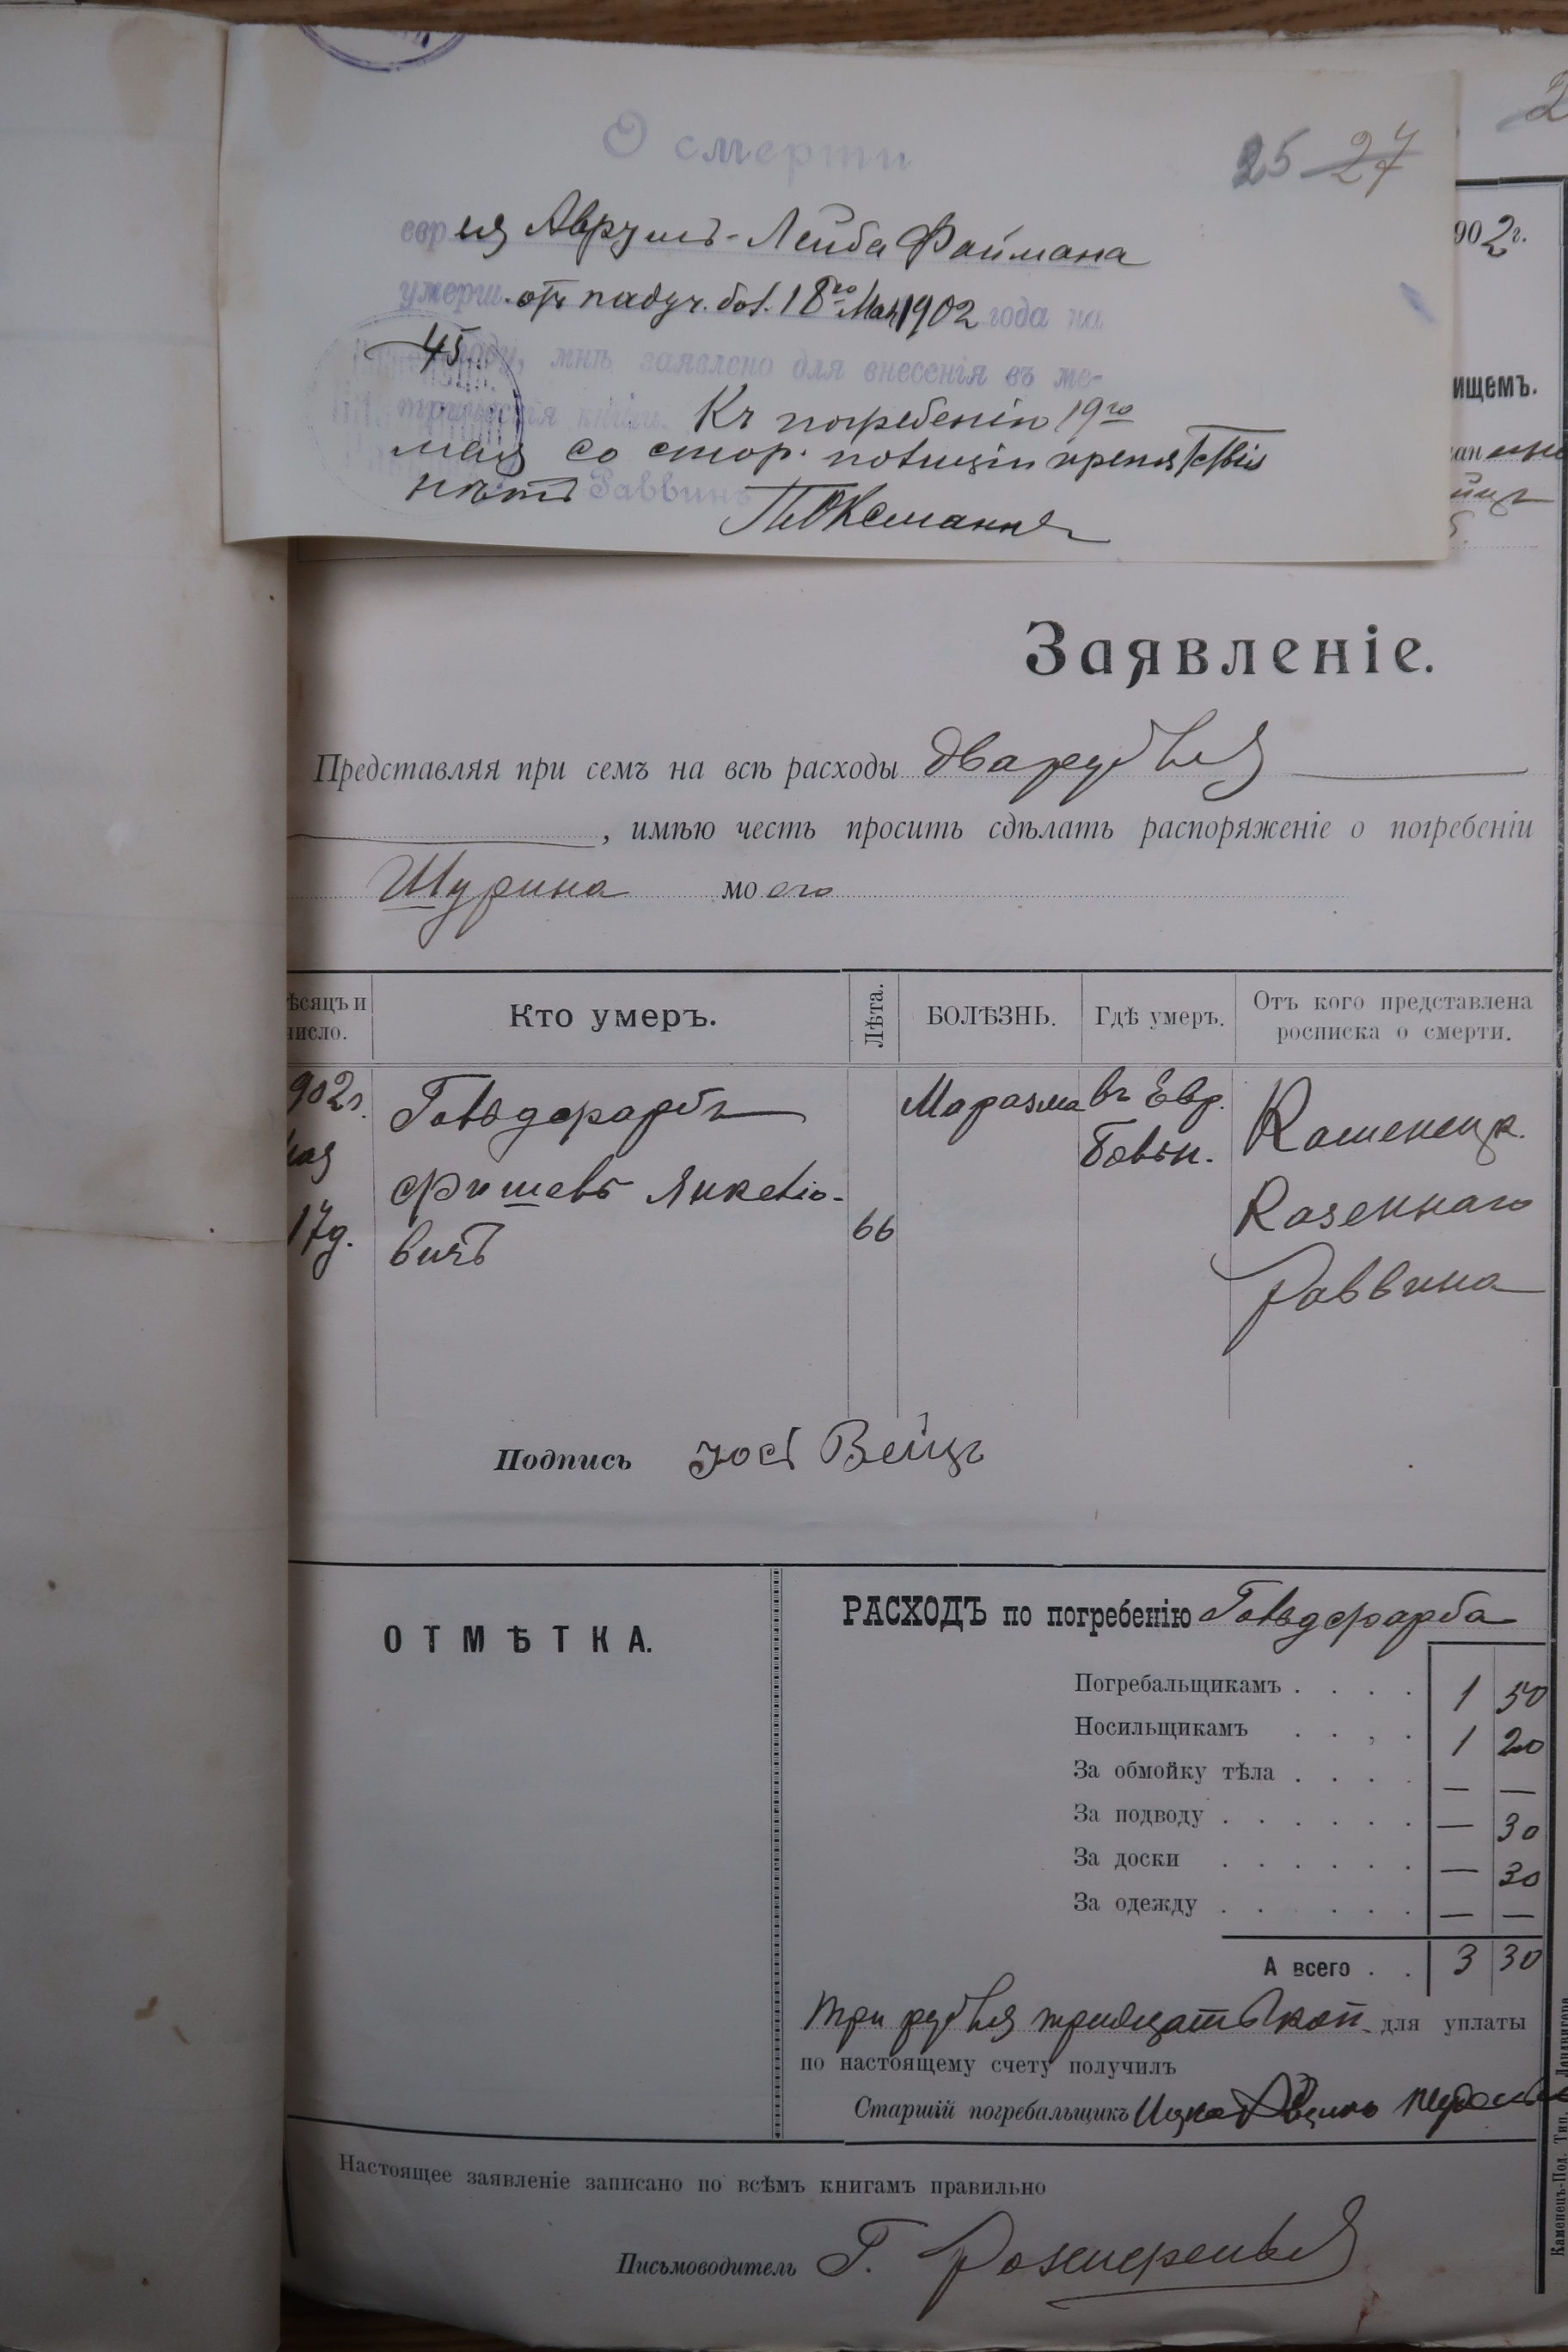 О смерти
25 27
еврея Аврумъ-Лейба Файмана
умерш. отъ падуч. бол. 18го Мая 1902 года на
45 году, мнѣ заявлено для внесенія въ ме-
трическія книги. Къ погребенію 19го
мая со стор. полиціи препятствія
нѣтъ Раввинъ
902г.
ищемъ.
Заявленіе.
Представляя при семъ на всѣ расходы два рубля
, имѣю честь просить сдѣлать распоряженіе о погребеніи
Шурина моего
ѣсяцъ и число. Кто умеръ. Лѣта. БОЛѢЗНЬ. Гдѣ умеръ. Отъ кого представлена росписка о смерти.
902г. Гольдфарбъ Маразма въ Евр. Каменецк.
мая Фишель Янкеліо- Больн. Казеннаго
17д. вичъ 66 Раввина
Подпись Іосъ Вейцъ
ОТМѢТКА.
РАСХОДЪ по погребенію Гольдфарба
Погребальщикамъ . . . . 1 50
Носильщикамъ . . , . 1 20
За обмойку тѣла . . . . — —
За подводу . . . . . . — 30
За доски . . . . . . — 30
За одежду . . . . . . — —
А всего . . 3 30
три рубля тридцать коп. для уплаты
по настоящему счету получилъ
Старшій погребальщикъ Ицко
Настоящее заявленіе записано по всѣмъ книгамъ правильно
Письмоводитель Г.
Каменецъ-Под. Тип.